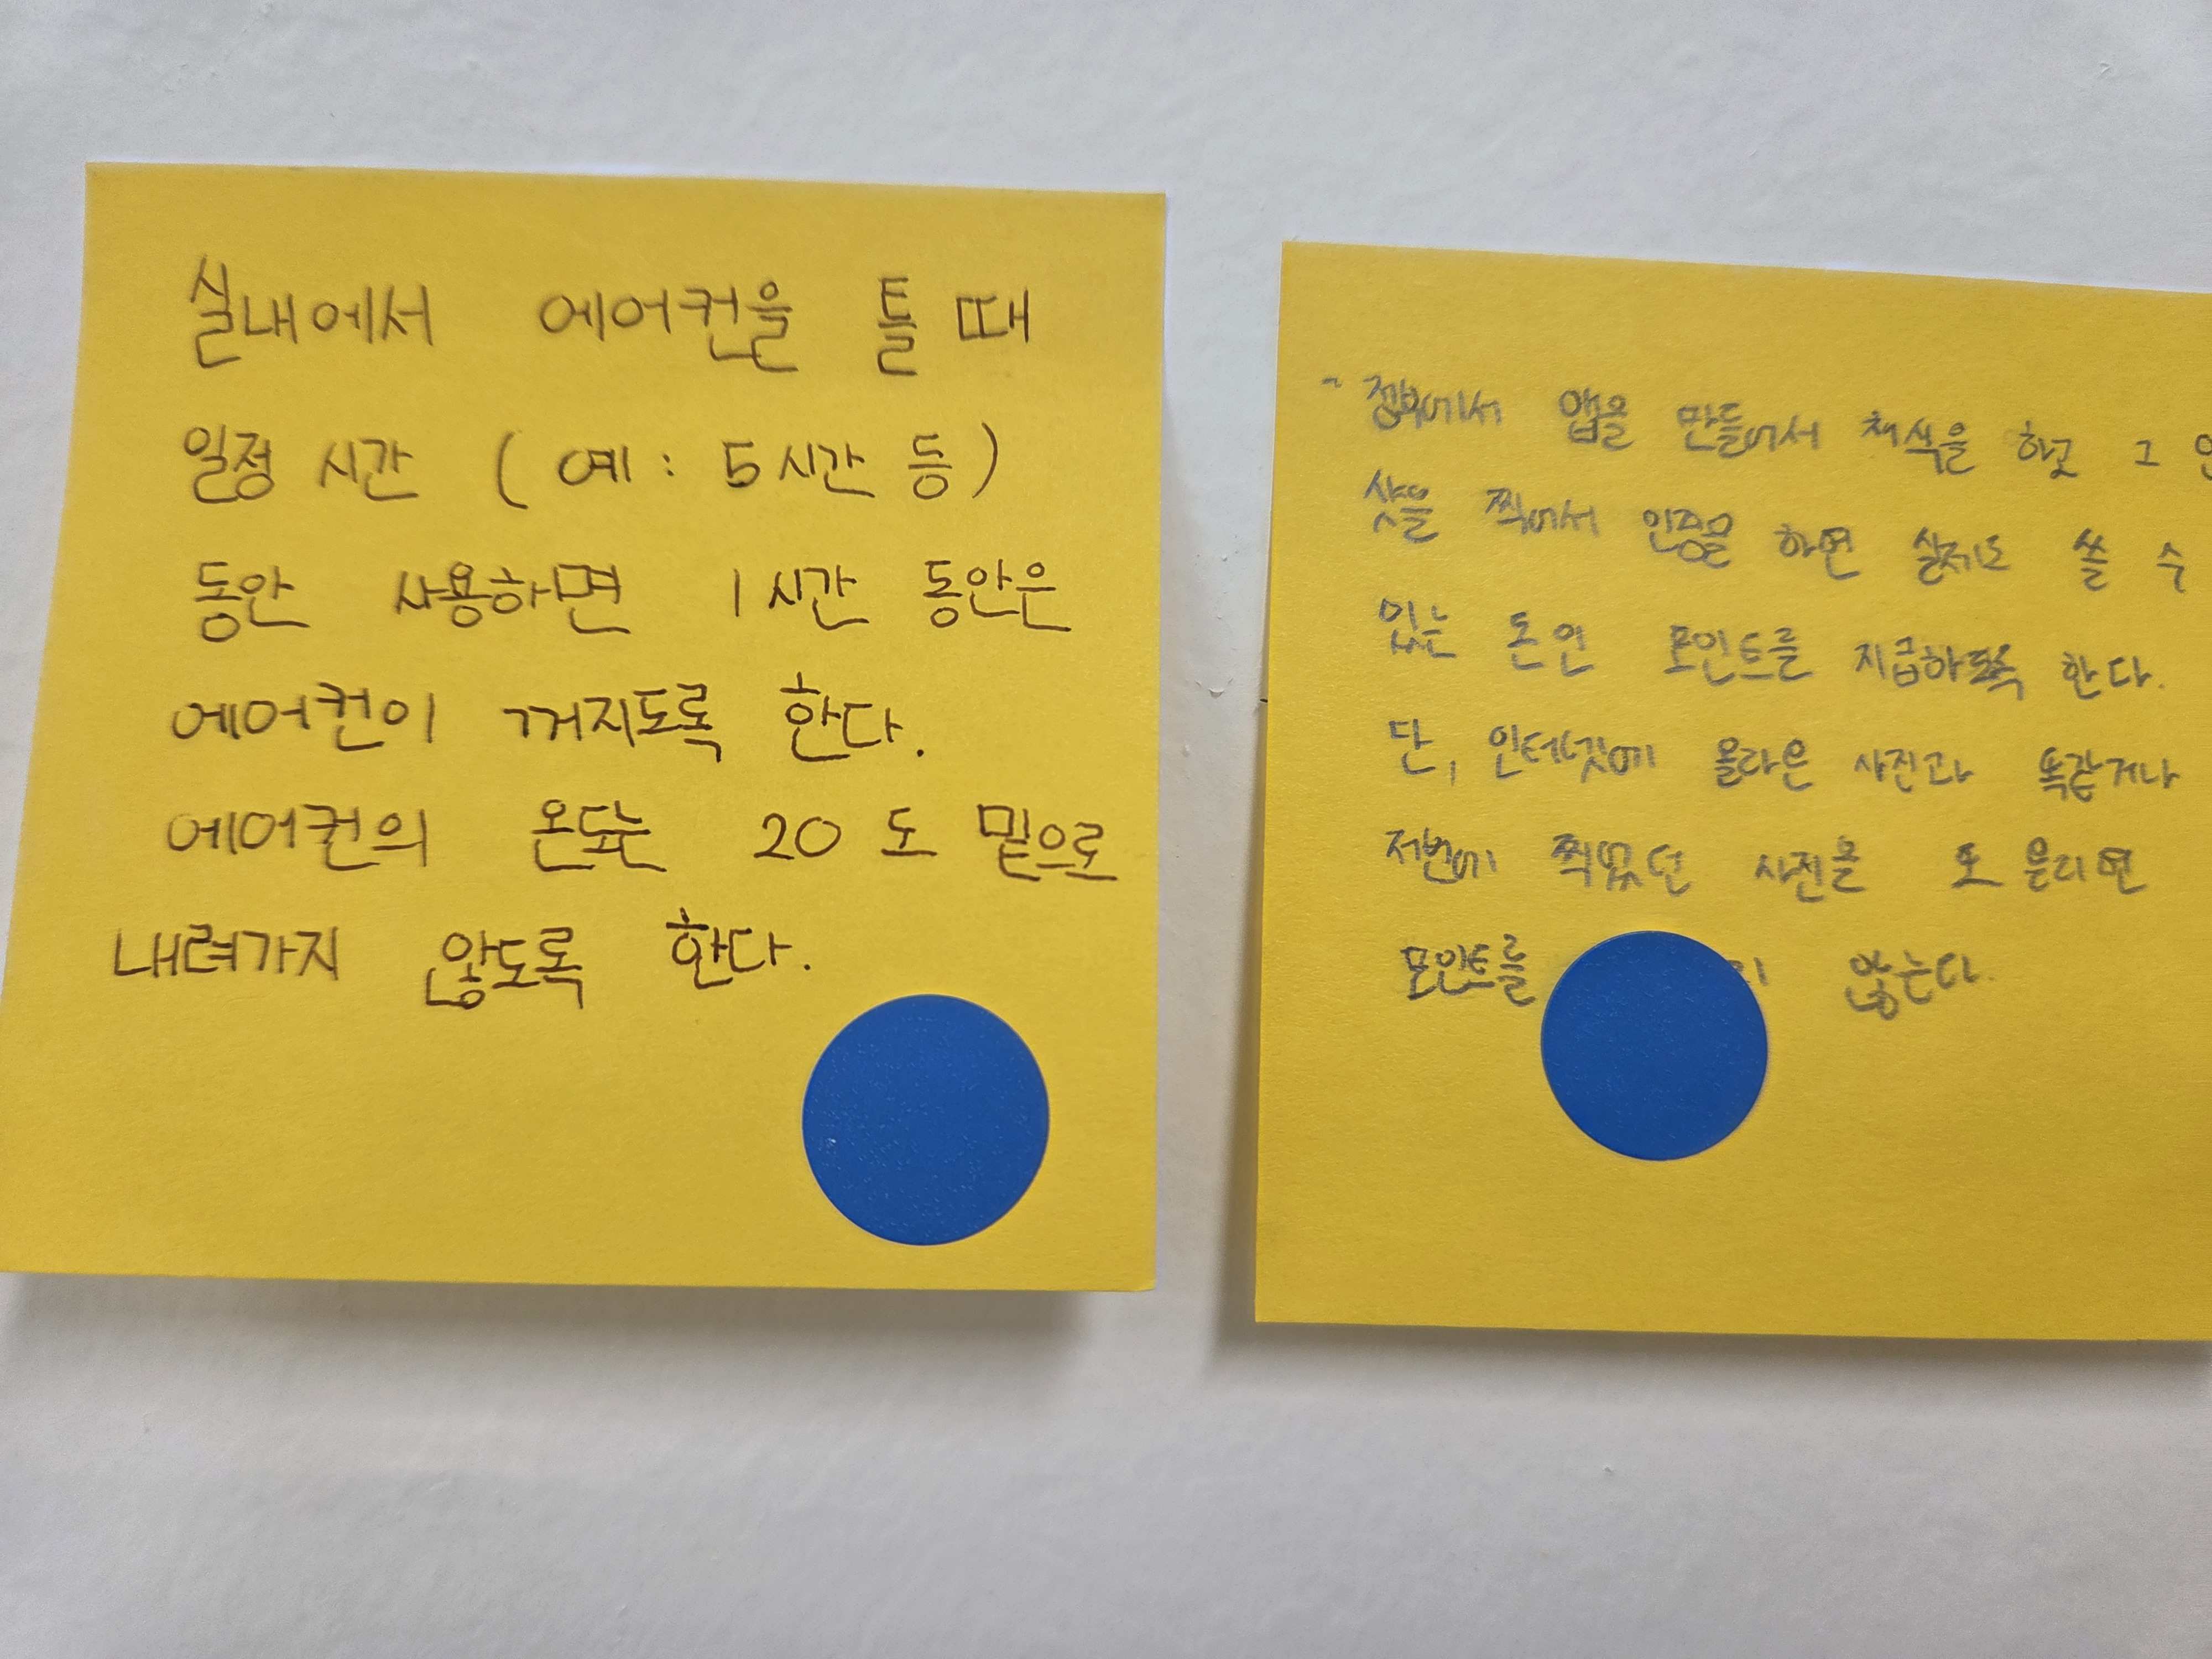 실내에서 에어컨을 틀 때
일정 시간 ( 예 : 5시간 등 )
동안 사용하면 1시간 동안은
에어컨이 꺼지도록 한다.
에어컨의 온도는 20도 밑으로
내려가지 않도록 한다.
- 정부에서 앱을 만들어서 채식을 하고 그
샷을 찍어서 인증을 하면 실제로 쓸 수
있는 돈인 포인트를 지급하도록 한다.
단, 인터넷에 올라온 사진과 똑같거나
저번에 찍었던 사진을 또 올리면
포인트를 않는다.